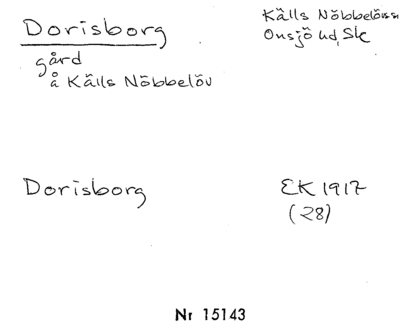 Dorisborg
Källs Nöbbelövs sn
Onsjö hd, Sk
gård
å Källs Nöbbelöv
Dorisborg
EK 1917
(28)
Nr 15143